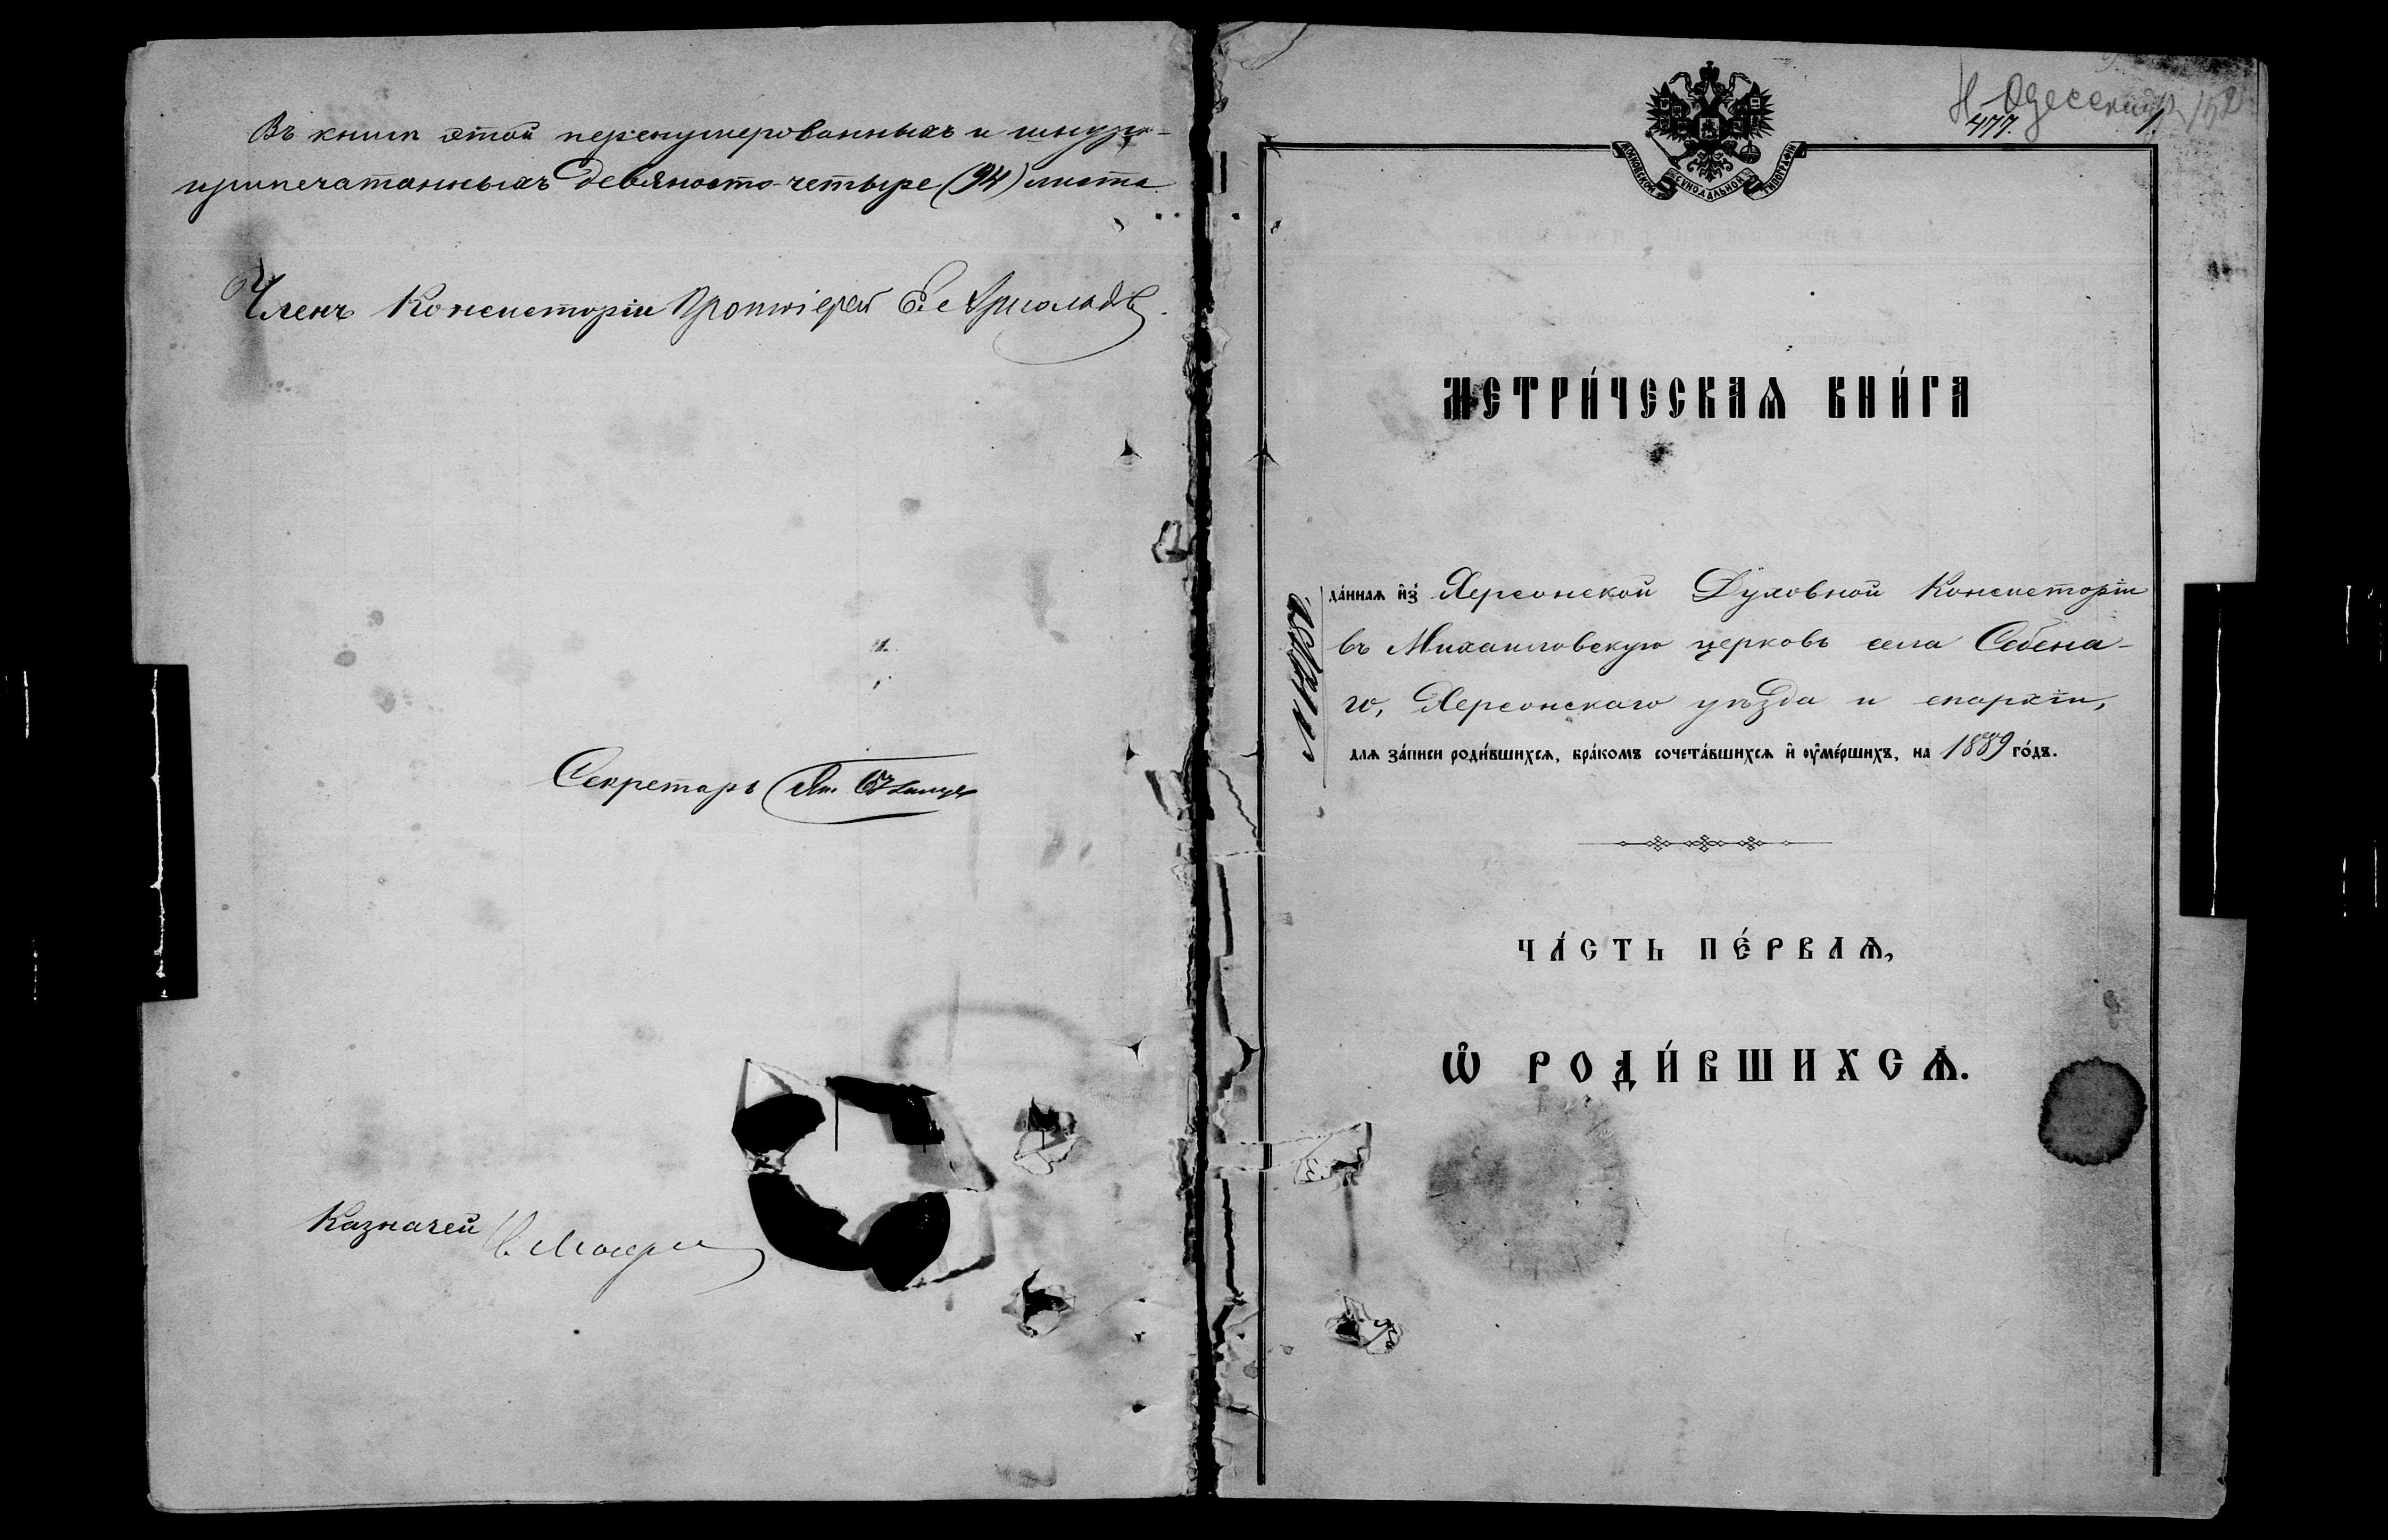 Въ книгѣ этой перенумерованныхъ и шнуро-
припечатанныхъ девяносто-четыре (94) листа
Членъ Консисторіи Протоіерей
Секретарь
Казначей
Н-Одесский р. 152
477. 1.
МОСКОВСКОЙ СѴНОДАЛЬНОЙ ТИПОГРАФІИ
МЕТРИ́ЧЕСКАѦ КНИ́ГА
да́ннаѧ и҆зъ Херсонской Духовной Консисторіи
въ Михаиловскую церковь села Себена-
го, Херсонскаго уѣзда и епархіи,
длѧ за́писи роди́вшихсѧ, бра́комъ сочета́вшихсѧ и҆ ᲂу҆ме́ршихъ, на 1889 го́дъ.
ЧА́СТЬ ПЕ́РВАѦ,
Ѡ҆ РОДИ́ВШИХСѦ.